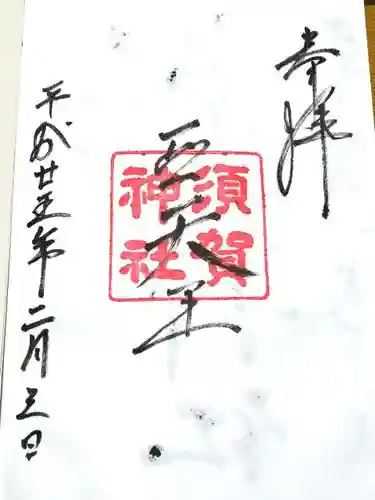 奉拝
須賀
神社
平成廿五年二月三日